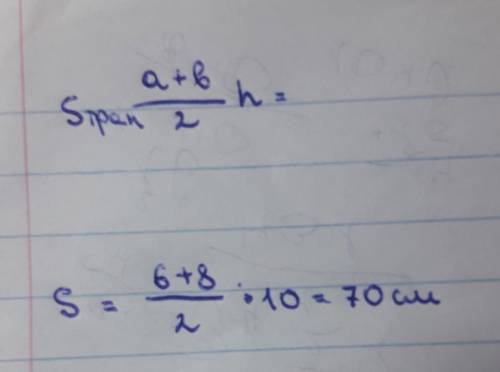 Sтрап (a+b)/2 h =
S = (6+8)/2 · 10 = 70 см